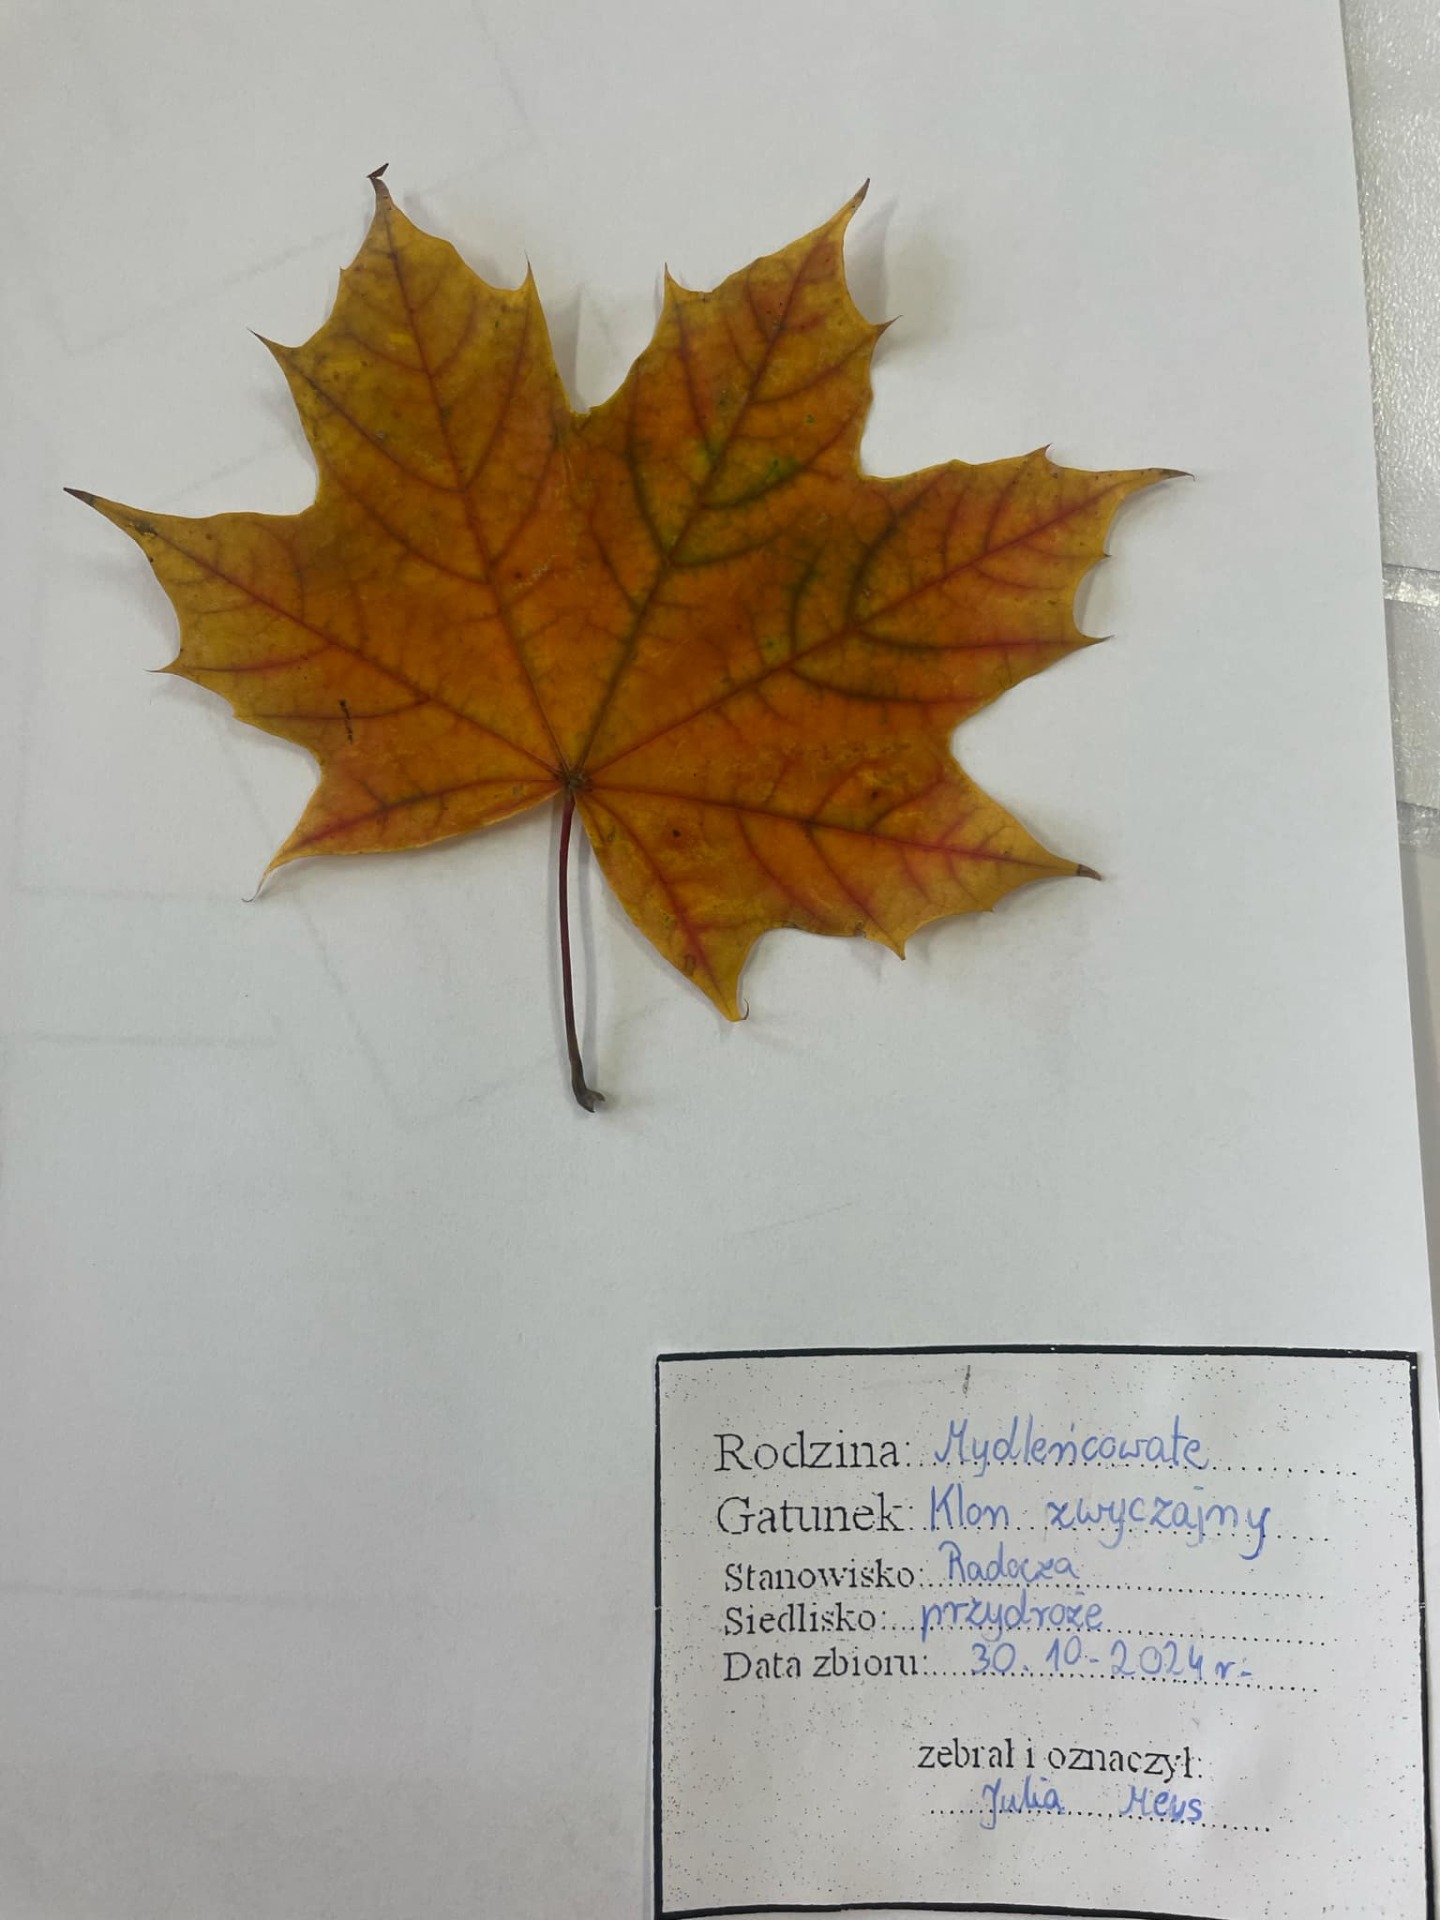 Rodzina: Mydleńcowate
Gatunek: Klon zwyczajny
Stanowisko: Radocza
Siedlisko: przydroże
Data zbioru: 30.10.2024 r.
zebrał i oznaczył:
Julia